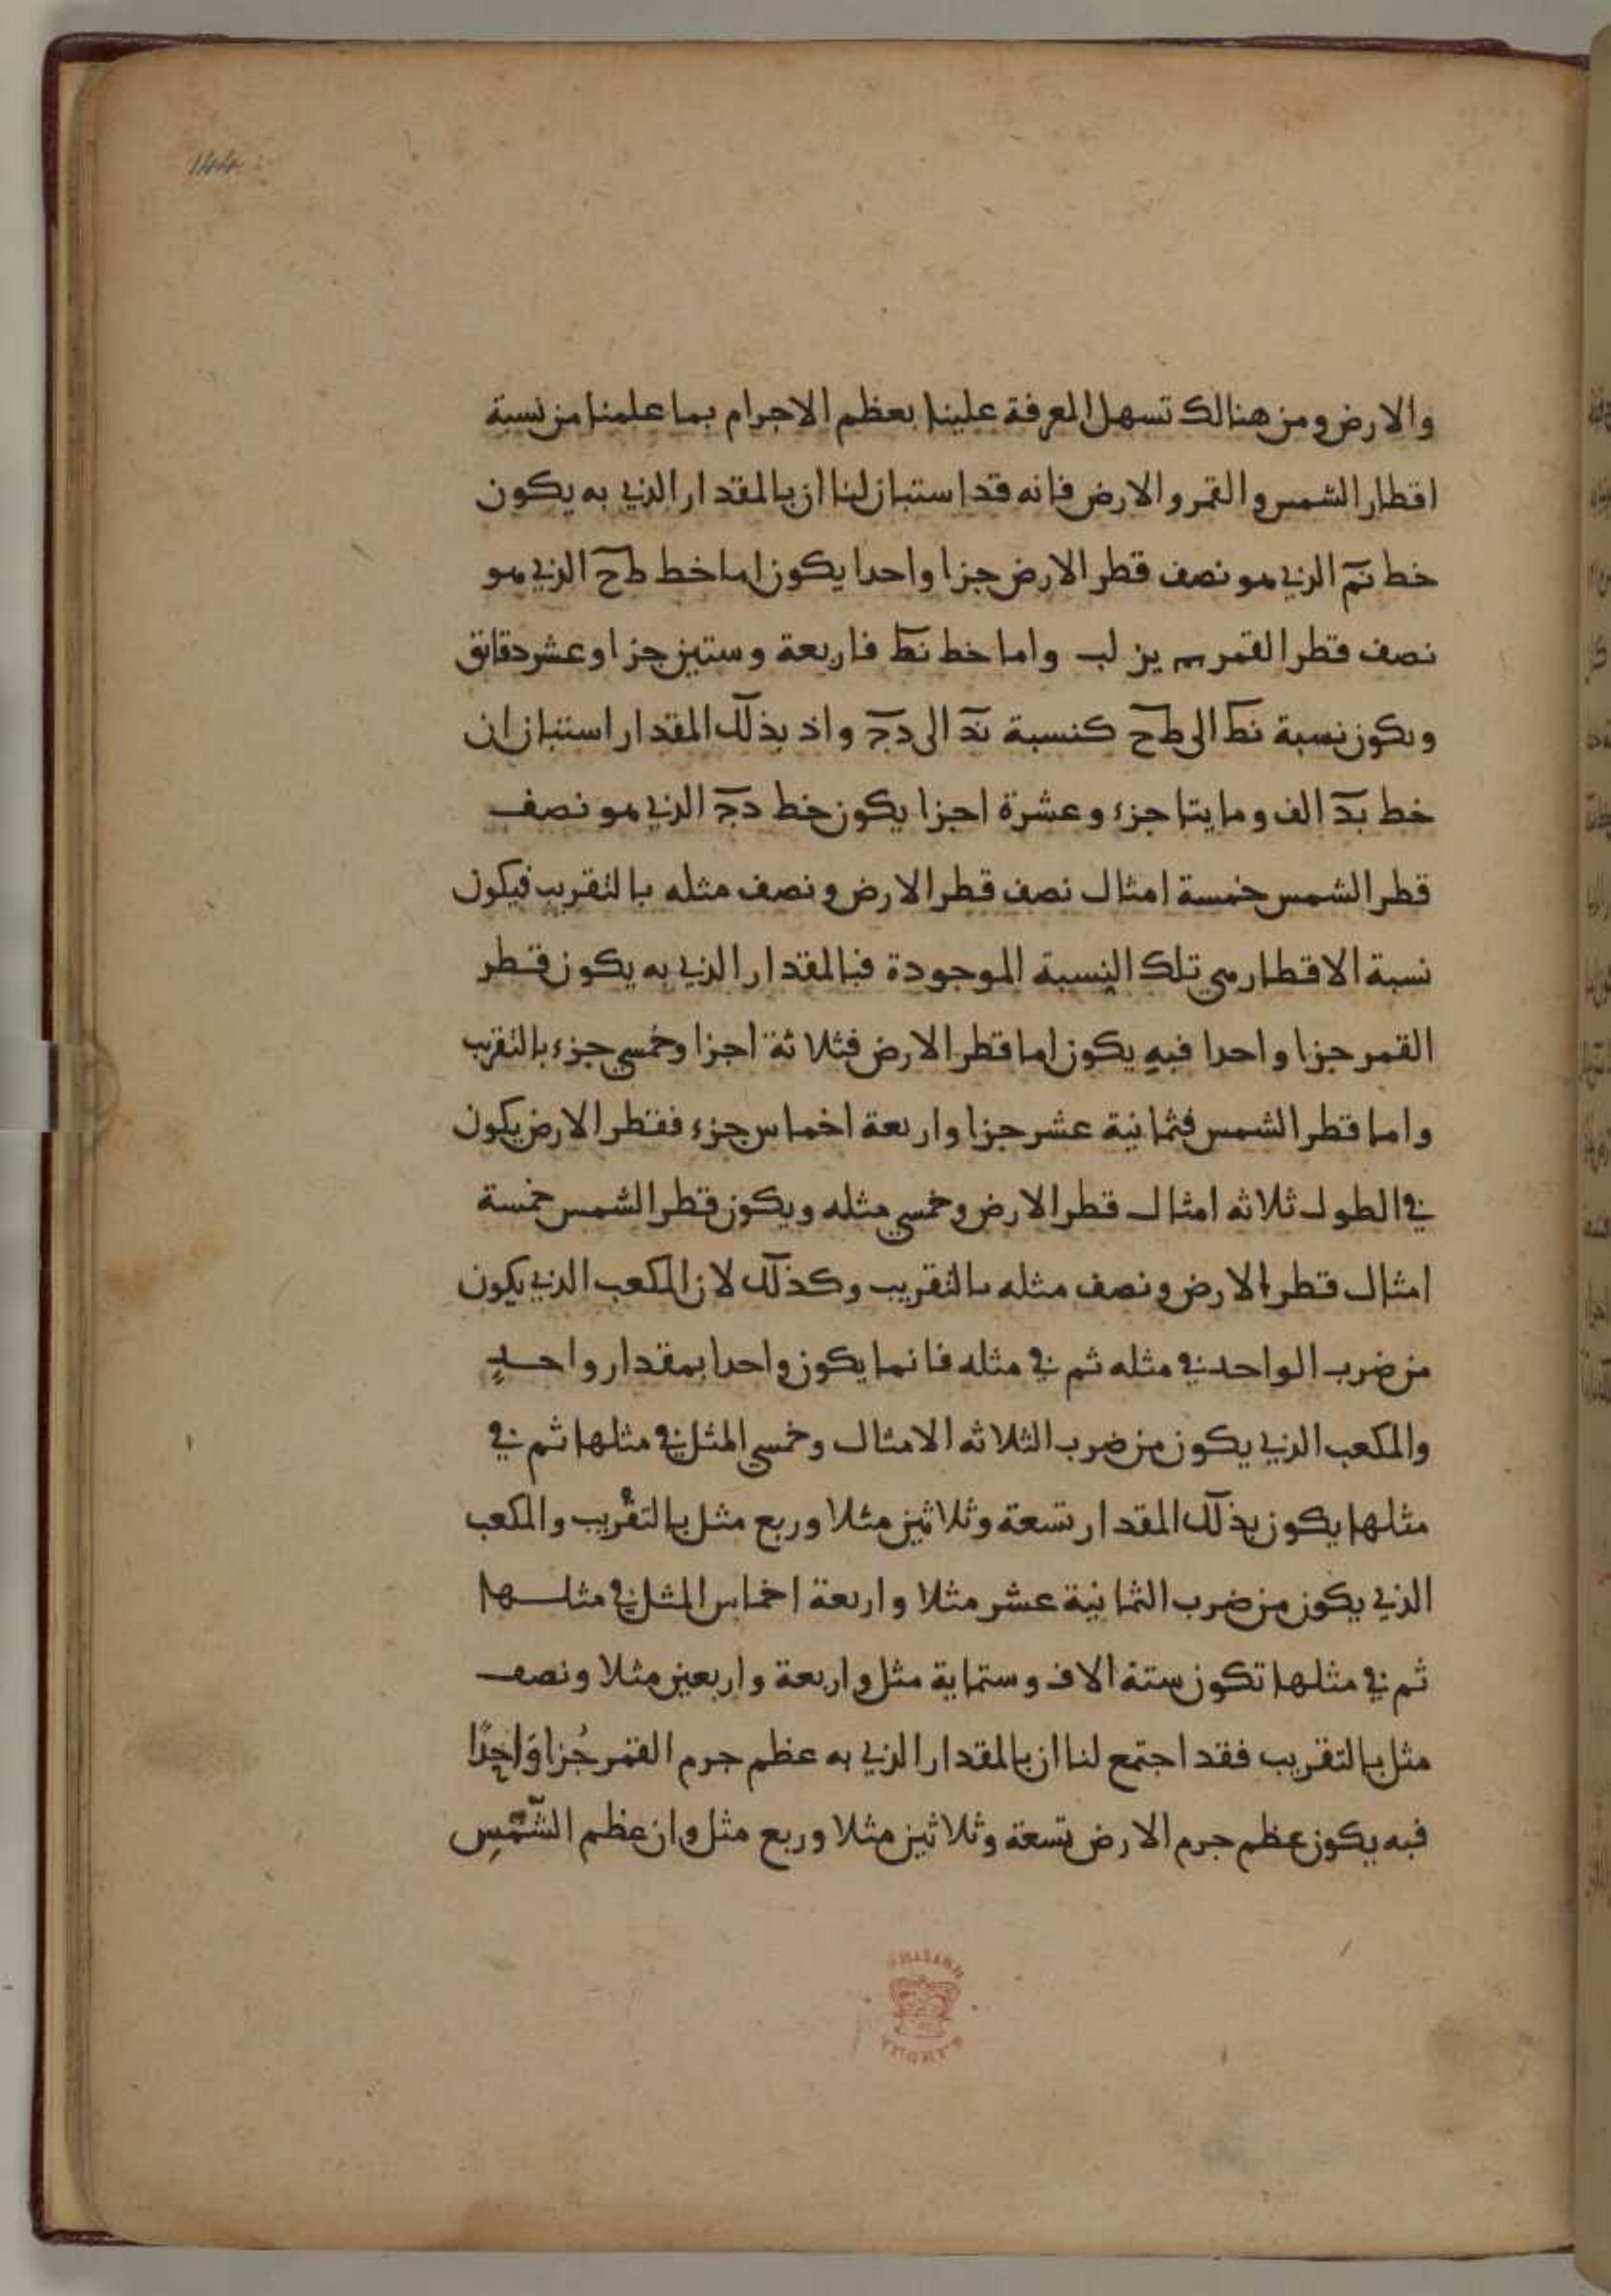 144
والارض ومن هنالك تسهل المعرفة علينا بعظم الاجرام بما علمنا من نسبة
اقطار الشمس والقمر والارض فانه قد استبان لنا ان بالمقدار الذي به يكون
خط نم الذي هو نصف قطر الارض جزا واحدا يكون اما خط طح الذي هو
نصف قطر القمر يز لب واما خط نط فاربعة وستين جزا وعشر دقايق
ويكون نسبة نط الى طح كنسبة ند الى دج واذ بذلك المقدار استبان ان
خط بد الف ومايتا جزء وعشرة اجزا يكون خط دج الذي هو نصف
قطر الشمس خمسة امثال نصف قطر الارض ونصف مثله بالتقريب فيكون
نسبة الاقطار هي تلك النسبة الموجودة فبالمقدار الذي به يكون قطر
القمر جزا واحدا فبه يكون اما قطر الارض فثلاثة اجزا وخمسي جزء بالتقريب
واما قطر الشمس فثمانية عشر جزا واربعة اخماس جزء فقطر الارض يكون
في الطول ثلاثه امثال قطر الارض وخمسي مثله ويكون قطر الشمس خمسة
امثال قطر الارض ونصف مثله بالتقريب وكذلك لان المكعب الذي يكون
من ضرب الواحد في مثله ثم في مثله فانما يكون واحدا بمقدار واحدٍ
والمكعب الذي يكون من ضرب الثلاثه الامثال وخمسي المثل في مثلها ثم في
مثلها يكون بذلك المقدار تسعة وثلاثين مثلا وربع مثل بالتقريب والمكعب
الذي يكون من ضرب الثمانية عشر مثلا واربعة اخماس المثل في مثلها
ثم في مثلها تكون ستة الاف وستماية مثل واربعة واربعين مثلا ونصف
مثل بالتقريب فقد اجتمع لنا ان بالمقدار الذي به عظم جرم القمر جُزا وَاحِدًا
فبه يكون عظم جرم الارض تسعة وثلاثين مثلا وربع مثل وان عظم الشّمْسِ